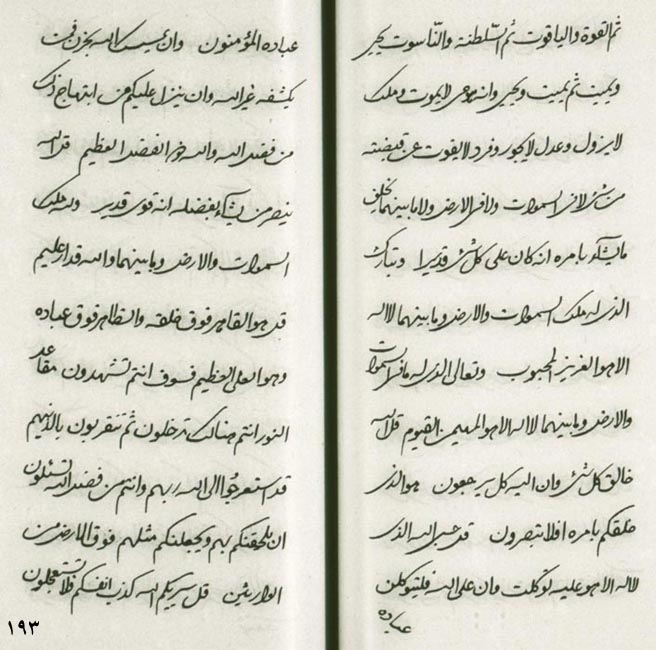 ثم القوة والياقوت ثم السلطنة والناسوت يحيي
ويميت ثم يميت ويحيي وانه هو حي لا يموت وملك
لا يزول وعدل لا يجور وفرد لا يفوت عن قبضته
من شئ لا في السموات ولا في الارض ولا ما بينهما يخلق
ما يشآء بامره انه كان على كل شئ قديرا وتبارك
الذي له ملك السموات والارض وما بينهما لا اله
الا هو العزيز المحبوب وتعالى الذي له ما في السموات
والارض وما بينهما لا اله الا هو المهيمن القيوم قل الله
خالق كل شئ وان اليه كل سيرجعون هو الذي
خلقكم بامره افلا تبصرون قل حسبي الله الذي
لا اله الا هو عليه توكلت وان على الله فليتوكلن
عباده
عباده المؤمنون وان يمسسك الله بحزن فمن
يكشفه غير الله وان ينزل عليكم من ابتهاج ذلك
من فضل الله والله ذو الفضل العظيم قل الله
ينصر من يشآء بفضله انه قوي قدير ولله ملك
السموات والارض وما بينهما والله قدار عليم
قل هو القاهر فوق خلقه والظاهر فوق عباده
وهو العلي العظيم فسوف انتم تشهدون مقاعد
النور انتم هنالك تدخلون ثم تتقربون بالذينهم
قد استعرجوا الى الله ربهم وانتم من فضل الله تسئلون
ان يلحقنكم بهم ويجعلنكم مثلهم فوق الارض من
الوارثين قل سيريكم الله كذب انفسكم فلا تستعجلون
١٩٣